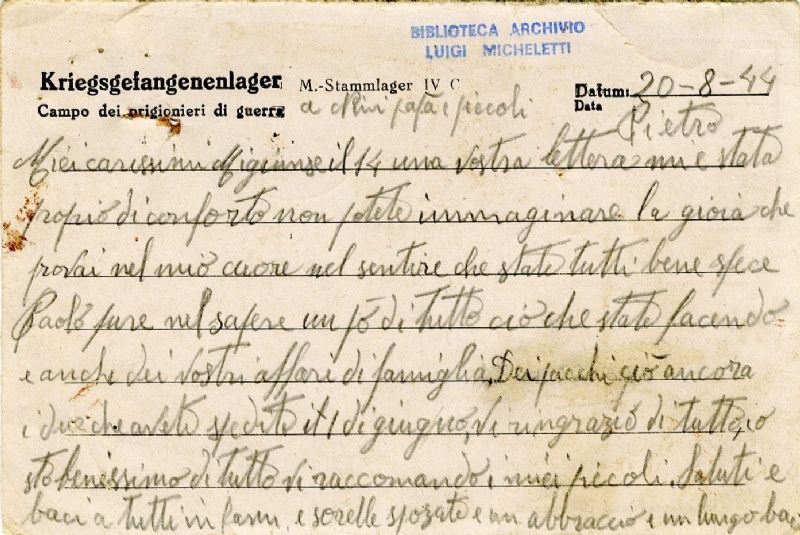 BIBLIOTECA ARCHIVIO
LUIGI MICHELETTI
Kriegsgefangenenlager M.-Stammlager IV C
Datum: 20-8-44
Campo dei prigionieri di guerra
Data
a papà e piccoli
Pietro
Miei carissimi Mi giunse il 14 una vostra lettera mi è stata
propio di conforto non potete immaginare la gioia che
provai nel mio cuore nel sentire che state tutti bene spece
Paolo pure nel sapere un pò di tutto ciò che state facendo
e anche dei vostri affari di famiglia. Dei pacchi ciò ancora
i due che avete spedito il 1 di giugno, vi ringrazio di tutto, io
sto benissimo di tutto vi raccomando i miei piccoli. Saluti e
baci a tutti in fam. e sorelle spozate e un abbraccio e un lungo bacio